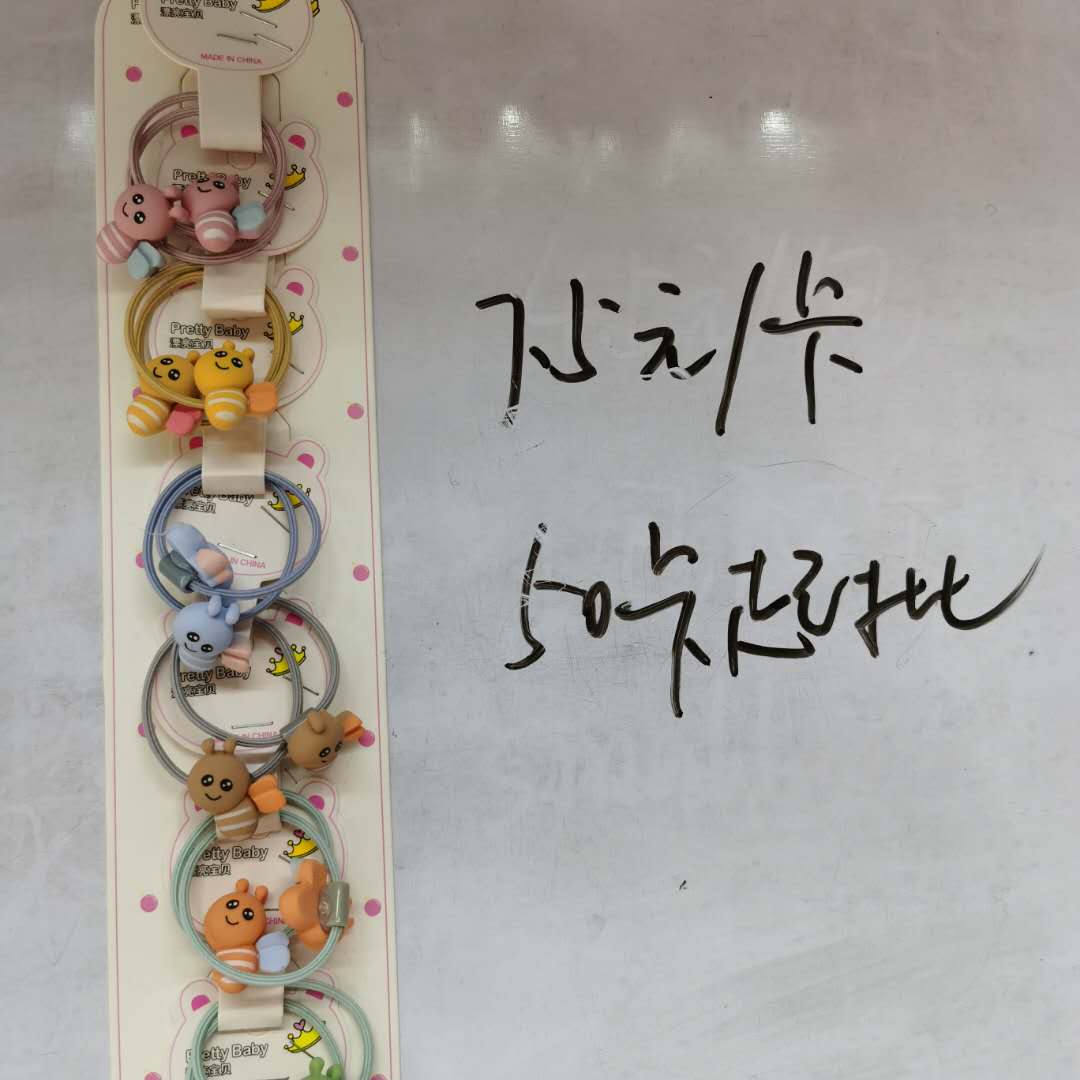 Pretty Baby
漂亮宝贝
MADE IN CHINA
Pretty Baby
Pretty Baby
漂亮宝贝
Pretty Baby
漂亮宝贝
IN CHINA
Pretty Baby
漂亮宝贝
IN CHINA
etty Baby
漂亮宝贝
CHIN
Pretty Baby
漂亮宝贝
75元/卡
50卡起批